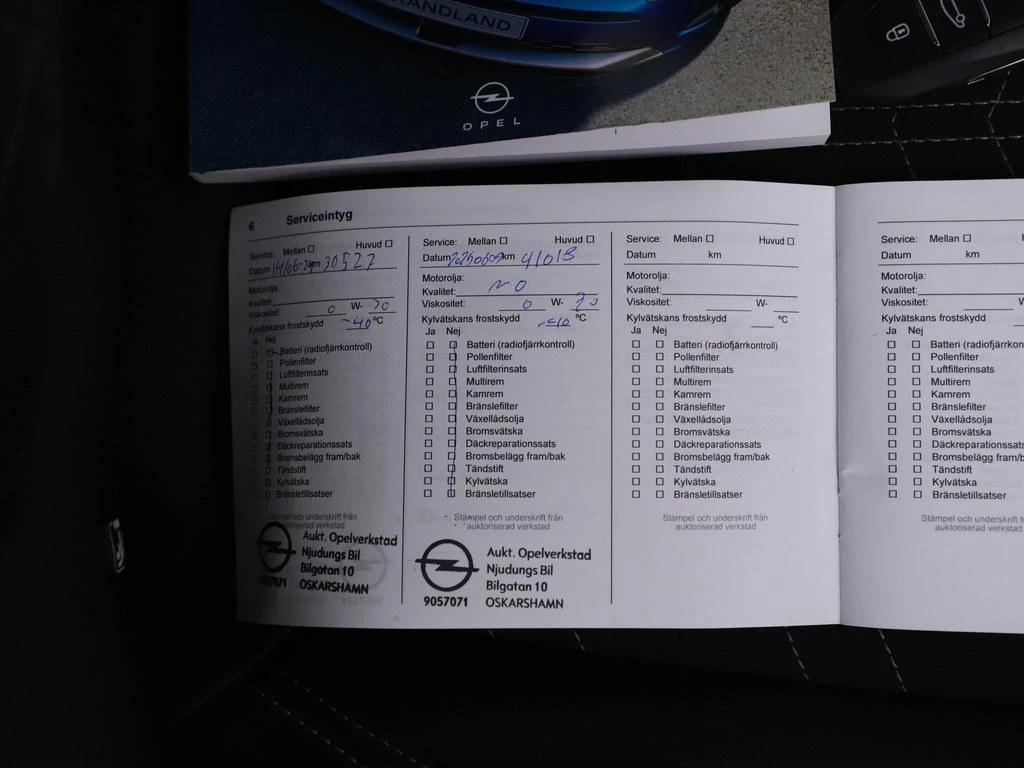 GRANDLAND
OPEL
6 Serviceintyg
Service: Mellan ☐ Huvud ☐
Datum km 30527
Motorolja:
Kvalitet:
Viskositet: 0 W- 20
Kylvätskans frostskydd -40 °C
Ja Nej
☐ ☐ Batteri (radiofjärrkontroll)
☐ ☐ Pollenfilter
☐ ☐ Luftfilterinsats
☐ ☐ Multirem
☐ ☐ Kamrem
☐ ☐ Bränslefilter
☐ ☐ Växellådsolja
☐ ☐ Bromsvätska
☐ ☐ Däckreparationssats
☐ ☐ Bromsbelägg fram/bak
☐ ☐ Tändstift
☐ ☐ Kylvätska
☐ ☐ Bränsletillsatser
Stämpel och underskrift från
auktoriserad verkstad
Aukt. Opelverkstad
Njudungs Bil
Bilgatan 10
9057071 OSKARSHAMN
Service: Mellan ☐ Huvud ☐
Datum 20250609 km 41013
Motorolja:
Kvalitet:
Viskositet: 0 W- 20
Kylvätskans frostskydd -40 °C
Ja Nej
☐ ☐ Batteri (radiofjärrkontroll)
☐ ☐ Pollenfilter
☐ ☐ Luftfilterinsats
☐ ☐ Multirem
☐ ☐ Kamrem
☐ ☐ Bränslefilter
☐ ☐ Växellådsolja
☐ ☐ Bromsvätska
☐ ☐ Däckreparationssats
☐ ☐ Bromsbelägg fram/bak
☐ ☐ Tändstift
☐ ☐ Kylvätska
☐ ☐ Bränsletillsatser
Stämpel och underskrift från
auktoriserad verkstad
Aukt. Opelverkstad
Njudungs Bil
Bilgatan 10
9057071 OSKARSHAMN
Service: Mellan ☐ Huvud ☐
Datum km
Motorolja:
Kvalitet:
Viskositet: W-
Kylvätskans frostskydd °C
Ja Nej
☐ ☐ Batteri (radiofjärrkontroll)
☐ ☐ Pollenfilter
☐ ☐ Luftfilterinsats
☐ ☐ Multirem
☐ ☐ Kamrem
☐ ☐ Bränslefilter
☐ ☐ Växellådsolja
☐ ☐ Bromsvätska
☐ ☐ Däckreparationssats
☐ ☐ Bromsbelägg fram/bak
☐ ☐ Tändstift
☐ ☐ Kylvätska
☐ ☐ Bränsletillsatser
Stämpel och underskrift från
auktoriserad verkstad
Service: Mellan ☐
Datum km
Motorolja:
Kvalitet:
Viskositet:
Kylvätskans frostskydd
Ja Nej
☐ ☐ Batteri (radiofjärrkon
☐ ☐ Pollenfilter
☐ ☐ Luftfilterinsats
☐ ☐ Multirem
☐ ☐ Kamrem
☐ ☐ Bränslefilter
☐ ☐ Växellådsolja
☐ ☐ Bromsvätska
☐ ☐ Däckreparationssats
☐ ☐ Bromsbelägg fram/b
☐ ☐ Tändstift
☐ ☐ Kylvätska
☐ ☐ Bränsletillsatser
Stämpel och underskrift fr
auktoriserad verkstad